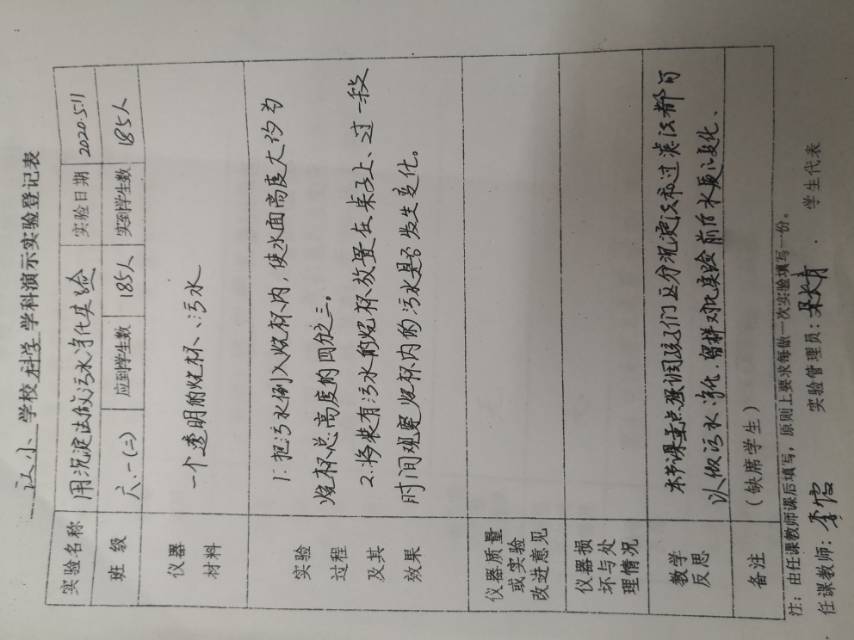 江小 学校 科学 学科演示实验登记表
实验名称 用沉淀法做污水净化实验 实验日期 2020.5.11
班级 六.一(二) 应到学生数 185人 实到学生数 185人
仪器
材料
一个透明的烧杯、污水
实验
过程
及其
效果
1: 把污水倒入烧杯内,使水面高度大约为
烧杯总高度的四分之三。
2.将装有污水的烧杯放置在桌子上、过一段
时间观察烧杯内的污水是否发生变化。
仪器质量
或实验
改进意见
仪器损
坏与处
理情况
教学
反思
本节课重点强调孩子们区分沉淀法和过滤法都可
以做污水净化.留样对比实验前后水质之变化.
备注 (缺席学生)
注:由任课教师课后填写,原则上要求每做一次实验填写一份。
任课教师: 李 实验管理员: 学生代表